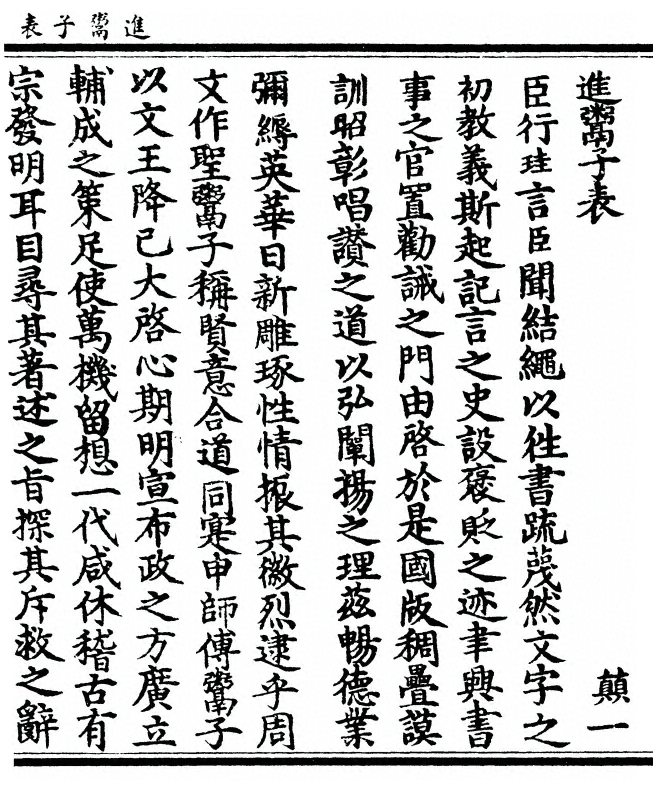 進鬻子表
進鬻子表 顛一
臣行珪言臣聞結繩以徃書疏蔑然文字之
初教義斯起記言之史設褒貶之迹聿興書
事之官置勸誡之門由啓於是國版稠疊謨
訓昭彰唱讃之道以弘闡揚之理茲暢德業
彌縟英華日新雕琢性情振其徽烈逮乎周
文作聖鬻子稱賢意合道同寔申師傅鬻子
以文王降己大啓心期明宣布政之方廣立
輔成之策足使萬機留想一代咸休稽古有
宗發明耳目尋其著述之旨探其斥救之辭